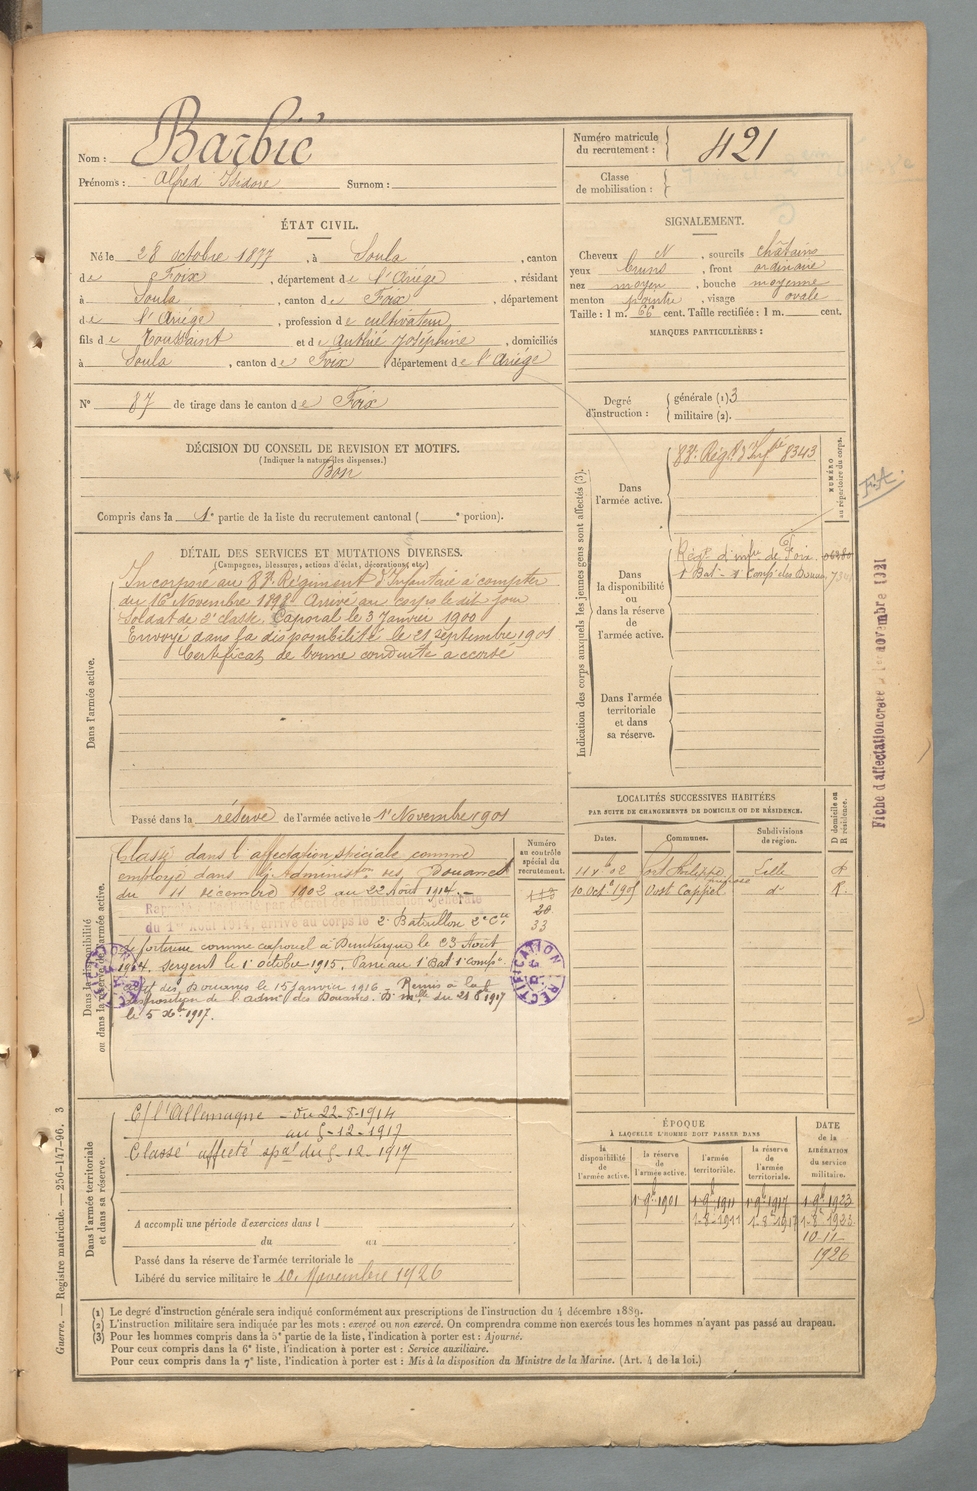 Nom : Barbié
Prénoms : Alfred Isidore Surnom :
Numéro matricule du recrutement : 421
Classe de mobilisation :
ÉTAT CIVIL.
Né le 28 octobre 1877, à Soula, canton
de Foix, département de l'Ariège, résidant
à Soula, canton de Foix, département
de l'Ariège, profession de cultivateur
fils de Toussaint et de Authié Joséphine, domiciliés
à Soula, canton de Foix, département de l'Ariège
N° 87 de tirage dans le canton de Foix
SIGNALEMENT.
Cheveux N, sourcils châtains
yeux bruns, front ordinaire
nez moyen, bouche moyenne
menton pointu, visage ovale
Taille : 1 m. 66 cent. Taille rectifiée : 1 m. cent.
MARQUES PARTICULIÈRES :
Degré d'instruction : générale (1) 3
militaire (2).
DÉCISION DU CONSEIL DE REVISION ET MOTIFS.
(Indiquer la nature des dispenses.)
Bon
Compris dans la 1e partie de la liste du recrutement cantonal ( e portion).
DÉTAIL DES SERVICES ET MUTATIONS DIVERSES.
(Campagnes, blessures, actions d'éclat, décorations, etc.)
Dans l'armée active.
Incorporé au 83e Régiment d'Infanterie à compter
du 16 Novembre 1898. Arrivé au corps le dit jour
Soldat de 2e classe. Caporal le 3 Janvier 1900
Envoyé dans la disponibilité le 21 septembre 1901
Certificat de bonne conduite accordé
Passé dans la réserve de l'armée active le 1r Novembre 1901
Indication des corps auxquels les jeunes gens sont affectés (3).
NUMÉRO au répertoire du corps.
Dans l'armée active.
83e Régt d'Infie 8343
Dans la disponibilité ou dans la réserve de l'armée active.
Régt d'infie de Foix
1 Bat - 1 Compie des Douanes
Dans l'armée territoriale et dans sa réserve.
F.A.
Fiche d'affectation créée le 1er novembre 1921
Dans la disponibilité ou dans la réserve de l'armée active.
Numéro au contrôle spécial du recrutement.
Classé dans l'affectation spéciale comme
employé dans l'Administon des Douanes
du 11 décembre 1902 au 22 Août 1914.-
du 1er Août 1914, arrivé au corps le 2e Bataillon 2e Cie
de forteresse comme caporal à Dunkerque le 23 Août
1914. Sergent le 1r octobre 1915. Passé au 1 Bat 1e Compie
des Douanes le 15 janvier 1916. Remis à la
disposition de l'admon des Douanes. D. mlle du 21 8 1917
le 5 Xbre 1917.
20
33
RECTIFICATION
RECTIFICATION
LOCALITÉS SUCCESSIVES HABITÉES
PAR SUITE DE CHANGEMENTS DE DOMICILE OU DE RÉSIDENCE.
Dates. Communes. Subdivisions de région. D domicile ou R résidence.
Lille
10 Oct. 1905 Oost Cappel do R.
Dans l'armée territoriale et dans sa réserve.
C/ l'Allemagne - du 22-8-1914
au 5-12-1917
Classé affecté spal du 5-12-1917
A accompli une période d'exercices dans l
du au
Passé dans la réserve de l'armée territoriale le
Libéré du service militaire le 10 Novembre 1926
ÉPOQUE
À LAQUELLE L'HOMME DOIT PASSER DANS
la disponibilité de l'armée active. la réserve de l'armée active. l'armée territoriale. la réserve de l'armée territoriale.
DATE de la LIBÉRATION du service militaire.
1r 9b 1901 1r 9b 1911 1r 9b 1917 1r 9b 1923
1-8b 1911 1-8b 1917 1-8b 1923
10-11-
1926
(1) Le degré d'instruction générale sera indiqué conformément aux prescriptions de l'instruction du 4 décembre 1889.
(2) L'instruction militaire sera indiquée par les mots : exercé ou non exercé. On comprendra comme non exercés tous les hommes n'ayant pas passé au drapeau.
(3) Pour les hommes compris dans la 5e partie de la liste, l'indication à porter est : Ajourné.
Pour ceux compris dans la 6e liste, l'indication à porter est : Service auxiliaire.
Pour ceux compris dans la 7e liste, l'indication à porter est : Mis à la disposition du Ministre de la Marine. (Art. 4 de la loi.)
Guerre. — Registre matricule. — 256-147-96. 3